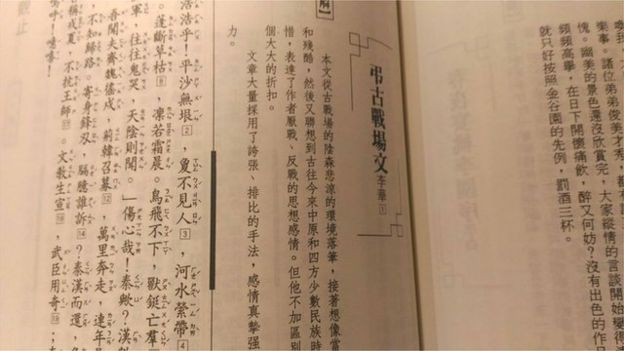 樂事。諸位弟弟俊美才秀，都有
愧。幽美的景色還沒欣賞完，大家縱情的言談開始變得清
頻頻高舉，在日下開懷痛飲，醉又何妨？沒有出色的作品
就只好按照金谷園的先例，罰酒三杯。
弔古戰場文 李華 1
解
本文從古戰場的陰森悲涼的環境落筆，接著想像當
和殘酷，然後又聯想到古往今來中原和四方少數民族時
惜，表達了作者厭戰、反戰的思想感情。但他不加區別
個大大的折扣。
文章大量採用了誇張、排比的手法，感情真摯強
力。
浩浩乎！平沙無垠2，敻不見人3，河水縈帶4
。蓬斷草枯8，凜若霜晨。鳥飛不下，獸鋌亡群
軍，往往鬼哭，天陰則聞。」傷心哉！秦歟？漢
吾聞夫齊魏徭戍，荊韓召募12，萬里奔走，連年
，不知歸路。寄身鋒刃，腷臆誰訴14？秦漢而還，多
稱戎夏，不抗王師。文教失宣，武臣用奇；
嗚呼！噫嘻！
觀止